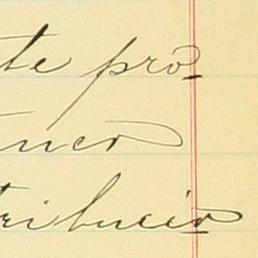 te pro
nco
tribucio